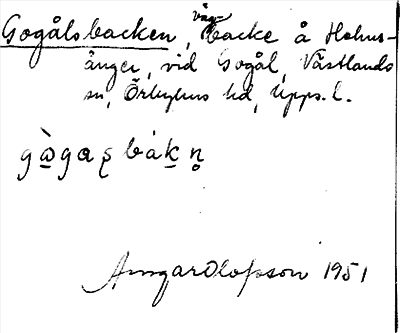 Gogålsbacken, vägbacke å Hohus-
ånger, vid Gogål, Västlands
sn, Örbyhus hd, Upps. l.
gò̱gaʂ bàḵn̥
Amgard Olofsson 1951